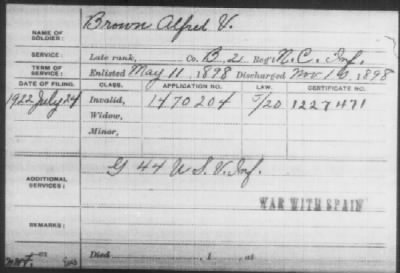 NAME OF SOLDIER: Brown Alfred V.
SERVICE: Late rank, Co. B 2 Reg N.C. Inf.
TERM OF SERVICE: Enlisted May 11, 1898 Discharged Nov 1898
DATE OF FILING. CLASS. APPLICATION NO. LAW. CERTIFICATE NO.
1922 July 24 Invalid, 1470204 5/20 1227471
Widow,
Minor,
ADDITIONAL SERVICES: G 44 U S V. Inf.
WAR WITH SPAIN
REMARKS:
Died , 1 , at